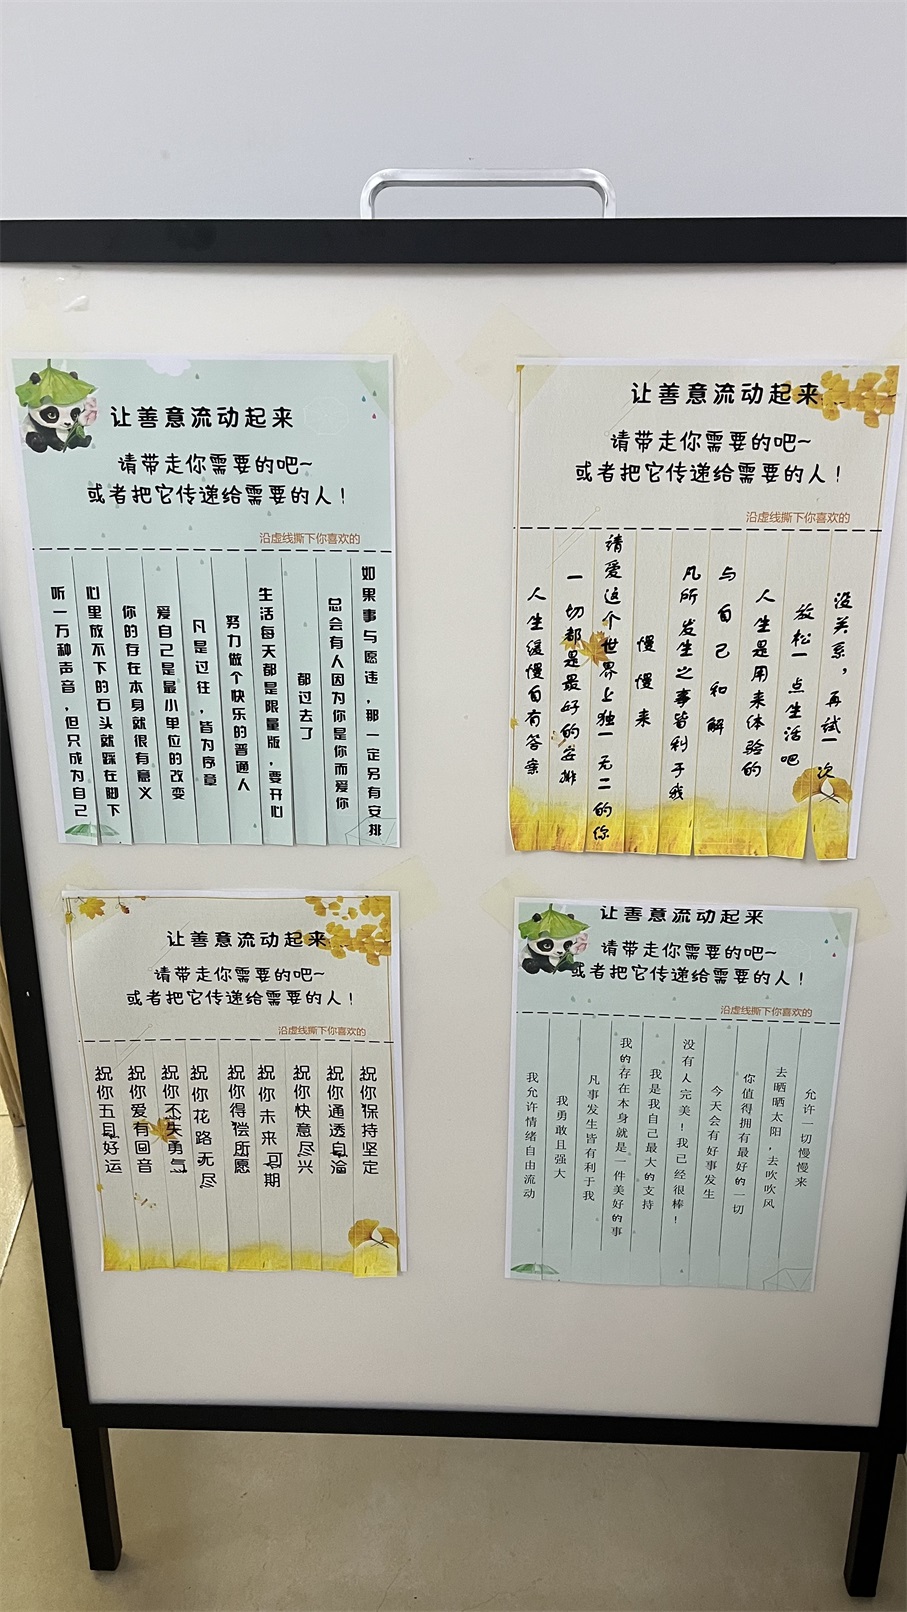 让善意流动起来
请带走你需要的吧~
或者把它传递给需要的人！
沿虚线撕下你喜欢的
听一万种声音，但只成为自己
心里放不下的石头就踩在脚下
你的存在本身就很有意义
爱自己是最小单位的改变
凡是过往，皆为序章
努力做个快乐的普通人
生活每天都是限量版，要开心
都过去了
总会有人因为你是你而爱你
如果事与愿违，那一定另有安排
让善意流动起来
请带走你需要的吧~
或者把它传递给需要的人！
沿虚线撕下你喜欢的
人生缓慢自有答案
一切都是最好的安排
请爱这个世界上独一无二的你
慢慢来
凡所发生之事皆利于我
与自己和解
人生是用来体验的
放松一点生活吧
没关系，再试一次
让善意流动起来
请带走你需要的吧~
或者把它传递给需要的人！
沿虚线撕下你喜欢的
祝你五月好运
祝你爱有回音
祝你不失勇气
祝你花路无尽
祝你得偿所愿
祝你未来可期
祝你快意尽兴
祝你通透自洽
祝你保持坚定
让善意流动起来
请带走你需要的吧~
或者把它传递给需要的人！
沿虚线撕下你喜欢的
我允许情绪自由流动
我勇敢且强大
凡事发生皆有利于我
我的存在本身就是一件美好的事
我是我自己最大的支持
没有人完美！我已经很棒！
今天会有好事发生
你值得拥有最好的一切
去晒晒太阳，去吹吹风
允许一切慢慢来